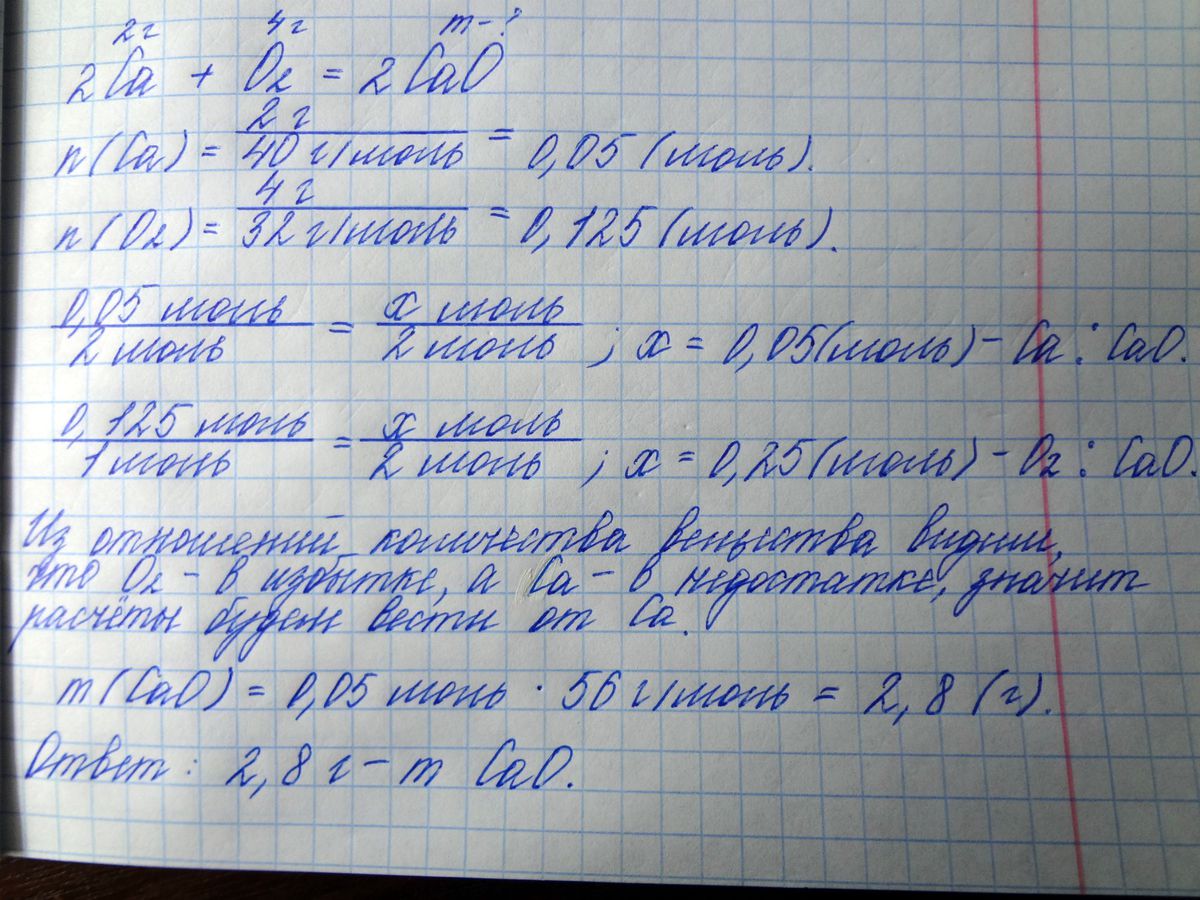 2г 4г m-?
2Ca + O2 = 2CaO
n(Ca) = 2г / 40 г/моль = 0,05 (моль).
n(O2) = 4г / 32 г/моль = 0,125 (моль).
0,05 моль / 2 моль = x моль / 2 моль ; x = 0,05(моль) - Ca : CaO.
0,125 моль / 1 моль = x моль / 2 моль ; x = 0,25(моль) - O2 : CaO.
Из отношений количества вещества видим,
что O2 - в избытке, а Ca - в недостатке, значит
расчёты будем вести от Ca.
m(CaO) = 0,05 моль · 56 г/моль = 2,8 (г).
Ответ: 2,8 г - m CaO.